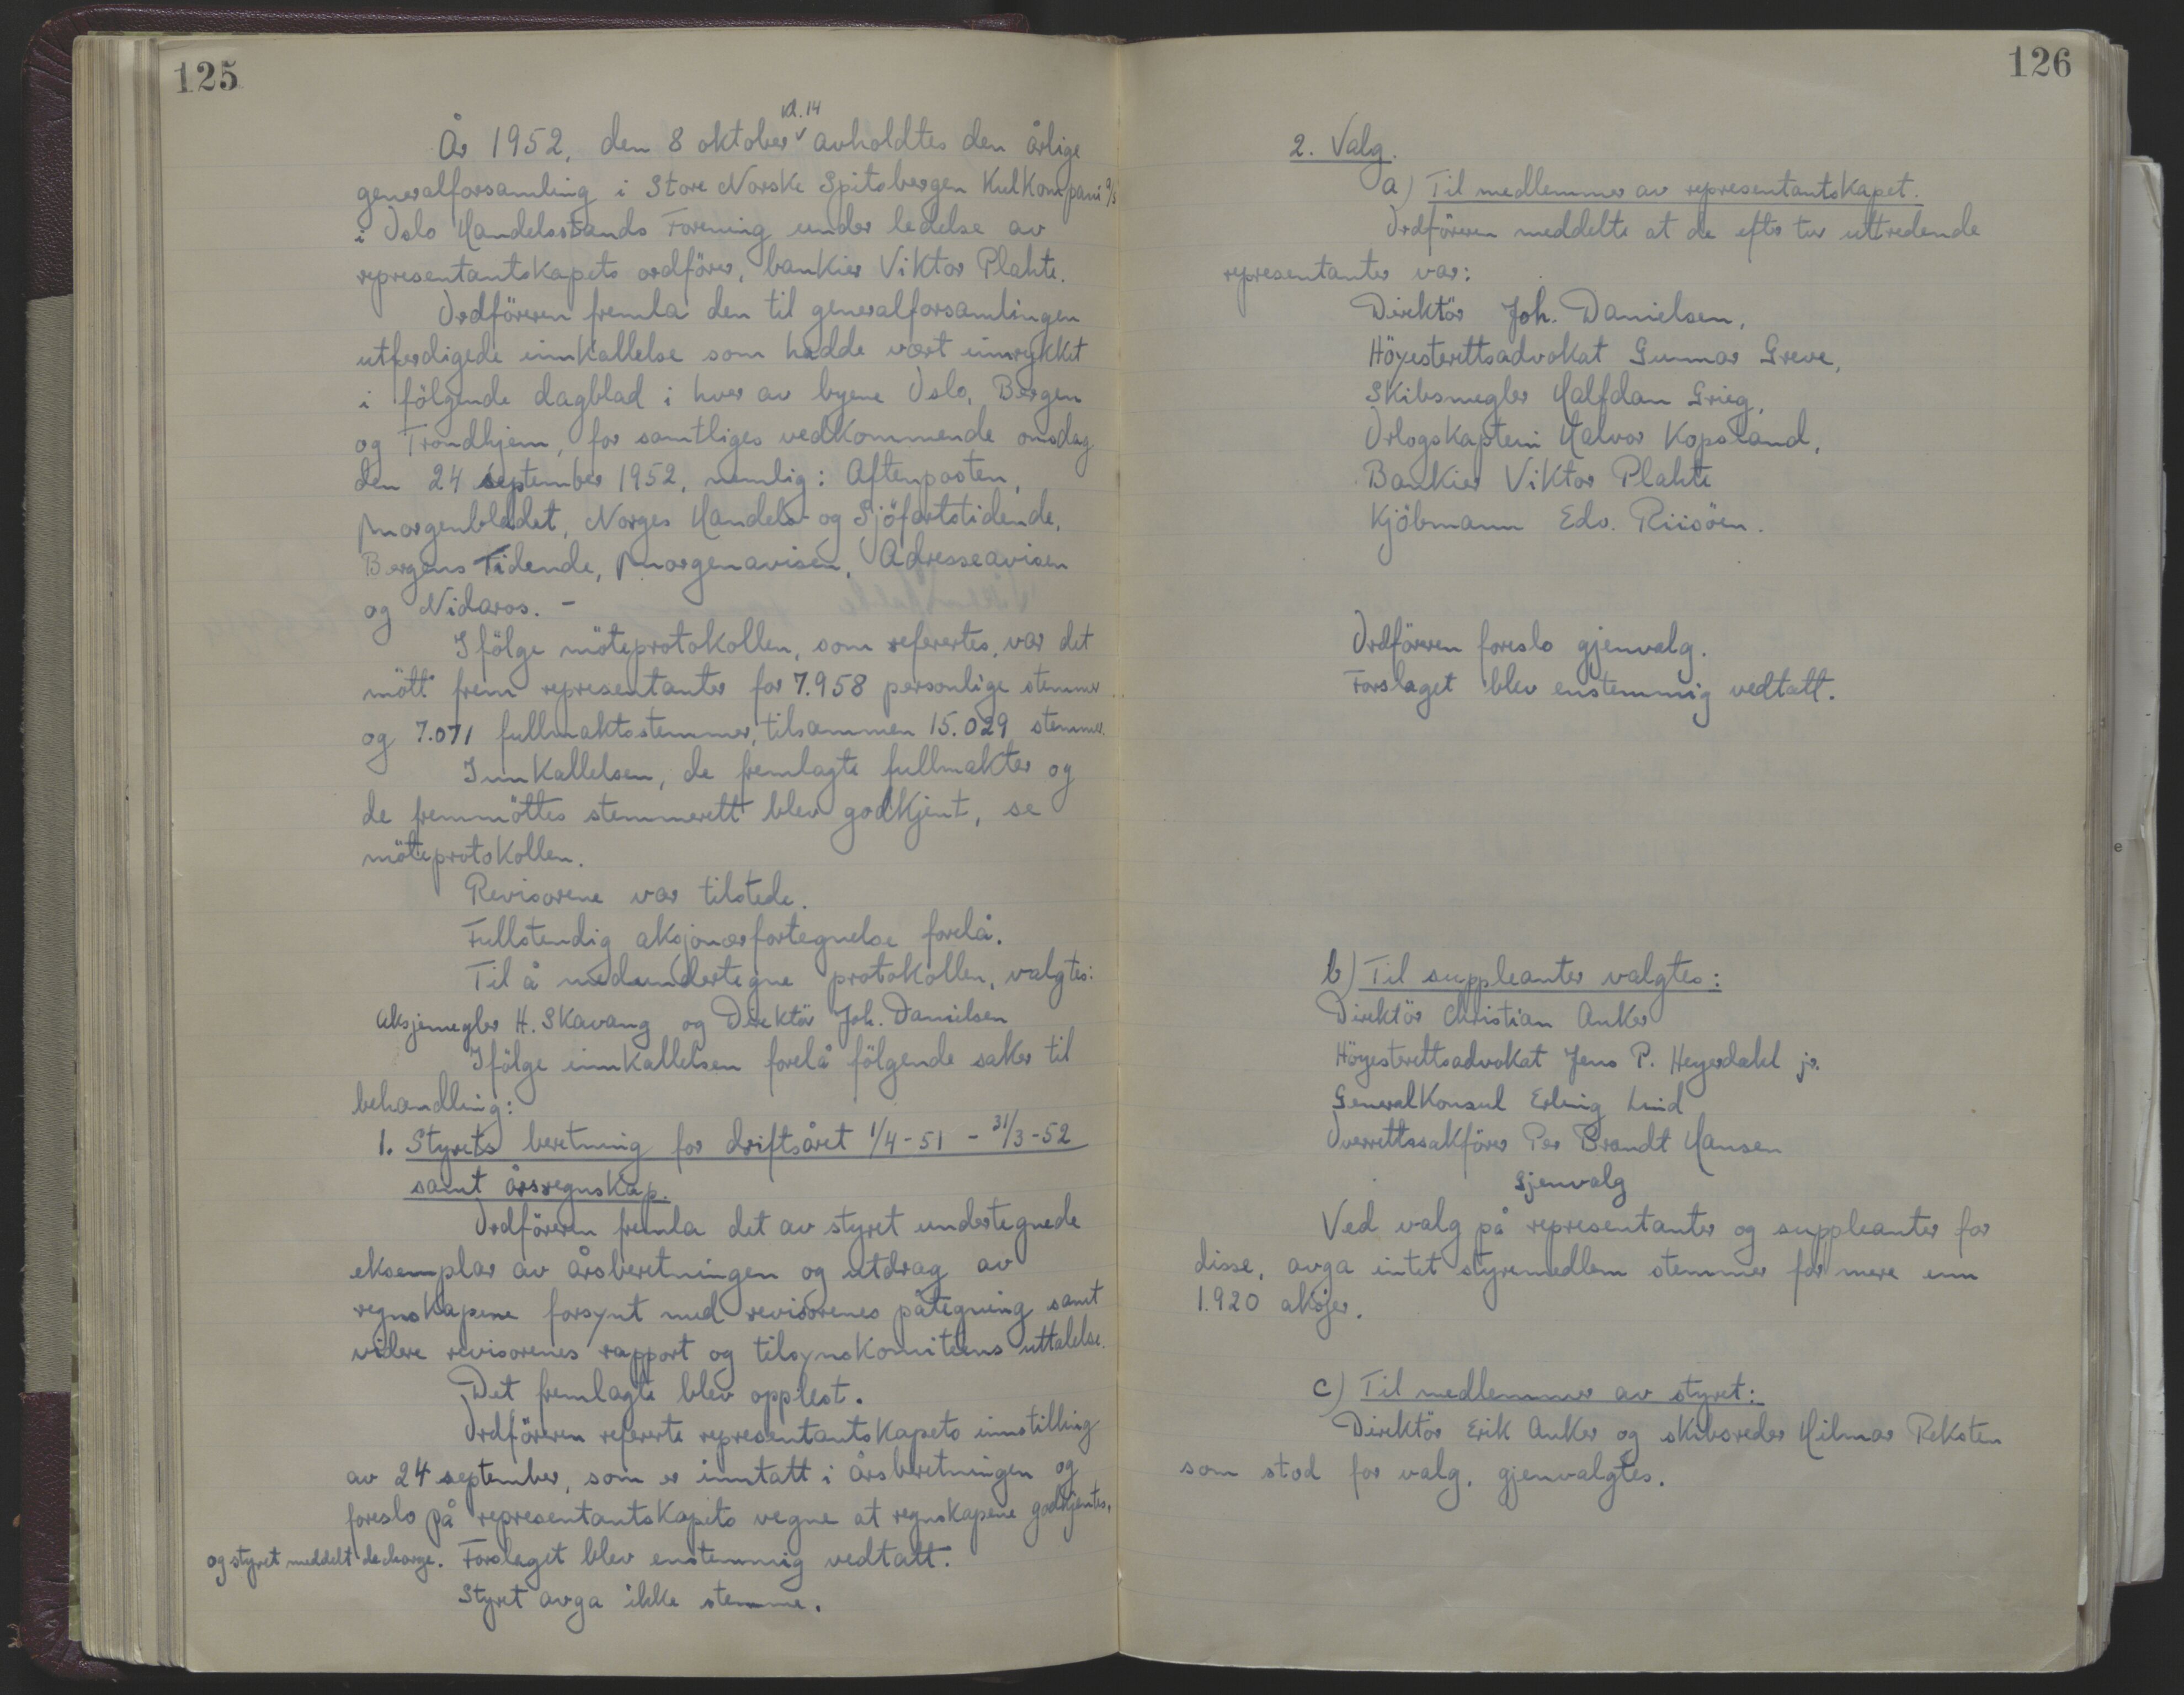 125
kl. 14
År 1952, den 8 oktober ˅ avholdtes den årlige
generalforsamling i Store Norske Spitsbergen Kulkompani A/S
i Oslo Handelsstands Forening under ledelse av
representantskapets ordförer, bankier Viktor Plahte.
Ordföreren fremla den til generalforsamlingen
utferdigede innkallelse som hadde vært innrykket
i fölgende dagblad i hver av byene Oslo, Bergen
og Trondhjem, for samtliges vedkommende onsdag
den 24 september 1952, nemlig: Aftenposten,
Morgenbladet, Norges Handels- og Sjöfartstidende,
Bergens Tidende, Morgenavisen, Adresseavisen
og Nidaros. -
Ifölge möteprotokollen, som refertes, var det
mött frem representanter for 7.958 personlige stemmer
og 7.071 fullmaktsstemmer, tilsammen 15.029 stemmer.
Innkallelsen, de fremlagte fullmakter og
de fremmöttes stemmerett blev godkjent, se
möteprotokollen.
Revisorene var tilstede.
Fullstendig aksjonærfortegnelse forelå.
Til å medundertegne protokollen, valgtes:
Aksjemegler H. Skavang og Direktör Joh. Danielsen
Ifölge innkallelsen forelå fölgende saker til
behandling:
1. Styrets beretning for driftsåret 1/4-51 - 31/3-52
samt årsregnskap.
Ordföreren fremla det av styret undertegnede
eksemplar av årsberetningen og utdrag av
regnskapene forsynt med revisorenes påtegning samt
videre revisorenes rapport og tilsynskomiteens uttalelse.
Det fremlagte blev opplest.
Ordföreren refererte representantskapets innstilling
av 24 september, som er inntatt i årsberetningen og
foreslo på representantskapets vegne at regnskapene godkjentes,
og styret meddelt decharge. Forslaget blev enstemmig vedtatt.
Styret avga ikke stemme.
126
2. Valg.
a) Til medlemmer av representantskapet.
Ordföreren meddelte at de efter tur uttredende
representanter var:
Direktör Joh. Danielsen,
Höyesterettsadvokat Gunnar Greve,
Skibsmegler Halfdan Grieg,
Orlogskaptein Halvor Kopsland,
Bankier Viktor Plahte
Kjöbmann Edv. Riisöen.
Ordföreren foreslo gjenvalg.
Forslaget blev enstemmig vedtatt.
b) Til suppleanter valgtes:
Direktör Christian Anker
Höyesterettsadvokat Jens P. Heyerdahl jr.
Generalkonsul Erling Lind
Overrettssakförer Per Brandt Hansen
Gjenvalg
Ved valg på representanter og suppleanter for
disse, avga intet styremedlem stemmer for mere enn
1.920 aksjer.
c) Til medlemmer av styret:
Direktör Erik Anker og skibsreder Hilmar Reksten
som stod for valg, gjenvalgtes.